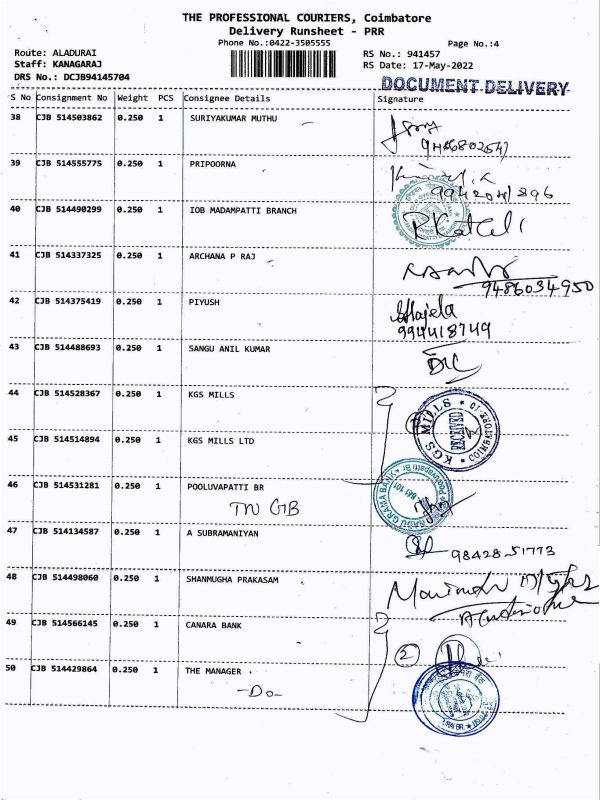 THE PROFESSIONAL COURIERS, Coimbatore
Delivery Runsheet - PRR
Phone No.:0422-3505555
Page No.:4
Route: ALADURAI
RS No.: 941457
Staff: KANAGARAJ
RS Date: 17-May-2022
DRS No.: DCJB94145704
DOCUMENT DELIVERY
S No Consignment No Weight PCS Consignee Details Signature
38 CJB 514503862 0.250 1 SURIYAKUMAR MUTHU
39 CJB 514555775 0.250 1 PRIPOORNA
40 CJB 514490299 0.250 1 IOB MADAMPATTI BRANCH
41 CJB 514337325 0.250 1 ARCHANA P RAJ
9486034950
42 CJB 514375419 0.250 1 PIYUSH
9944418749
43 CJB 514488693 0.250 1 SANGU ANIL KUMAR
44 CJB 514528367 0.250 1 KGS MILLS
KGS MILLS * COIMBATORE-10 *
RECEIVED
45 CJB 514514894 0.250 1 KGS MILLS LTD
46 CJB 514531281 0.250 1 POOLUVAPATTI BR
TN GB
47 CJB 514134587 0.250 1 A SUBRAMANIYAN
98428-51773
48 CJB 514498060 0.250 1 SHANMUGHA PRAKASAM
49 CJB 514566145 0.250 1 CANARA BANK
2
50 CJB 514429864 0.250 1 THE MANAGER
-Do-